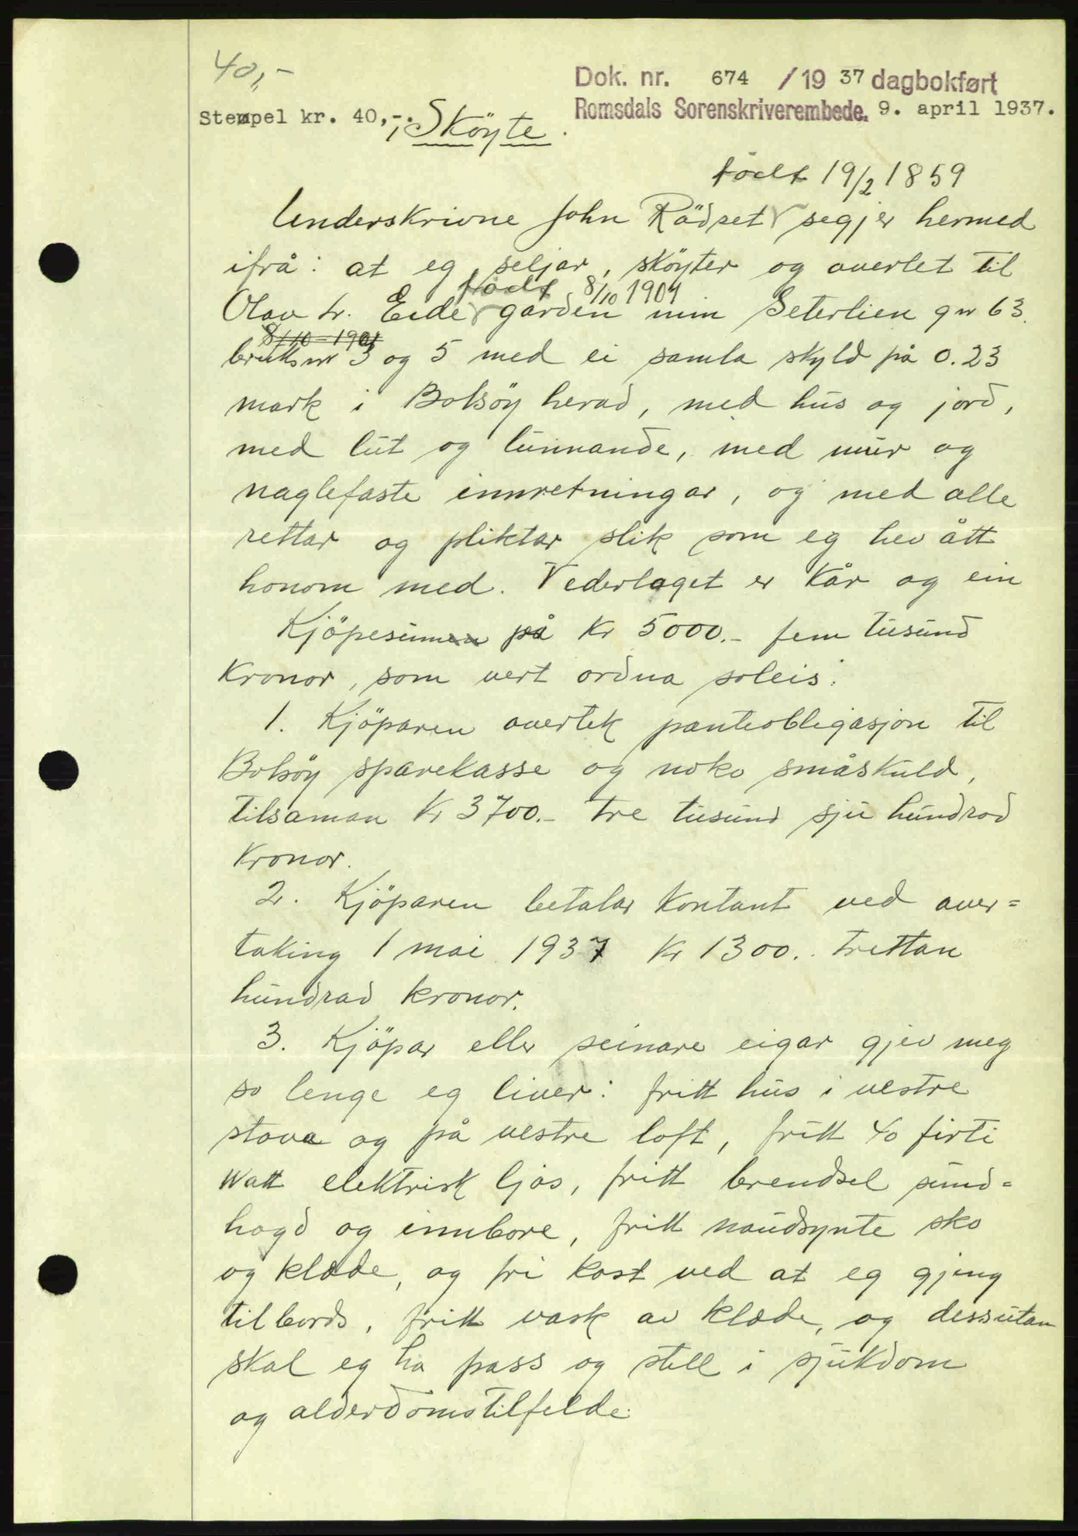 40,-
Dok. nr. 674 /19 37 dagbokført
Stempel kr. 40,-. Romsdals Sorenskriverembede. 9. april 1937.
Sköyte.
født 19/2 1859
Underskrivne John Rödset segjer hermed
ifrå: at eg seljar, sköyter og overlet til
født 8/10 1901
Olav L. Eide garden min Seterlien gnr 63.
8/10-1901
bruksnr 3 og 5 med ei samla skyld på 0.23
mark i Bolsöy herad, med hus og jord,
med lut og lunnande, med mur og
naglefaste innretningar, og med alle
rettar og pliktar slik som eg hev ått
honom med. Vederlaget er Kår og ein
Kjöpesum på Kr 5000.- fem tusund
Kronor, som vert ordna soleis:
1. Kjöparen overtek panteobligasjon til
Bolsöy sparekasse og noko småskuld,
tilsaman Kr 3700.- tre tusund sju hundrad
Kronor.
2. Kjöparen betalar Kontant ved over=
taking 1 mai 1937 Kr 1300.. trettan
hundrad kronor.
3. Kjöpar eller seinare eigar gjev meg
so lenge eg liver: fritt hus i vestre
stova og på vestre loft, fritt 40 firti
Watt elektrisk ljos, fritt brendsel sund=
hogd og innbore, fritt naudsynte sko
og klæde, og fri kost ved at eg gjeng
til bords, fritt vask av klæde, og dessutan
skal eg ha pass og stell i sjukdom
og alderdomstilfelde.